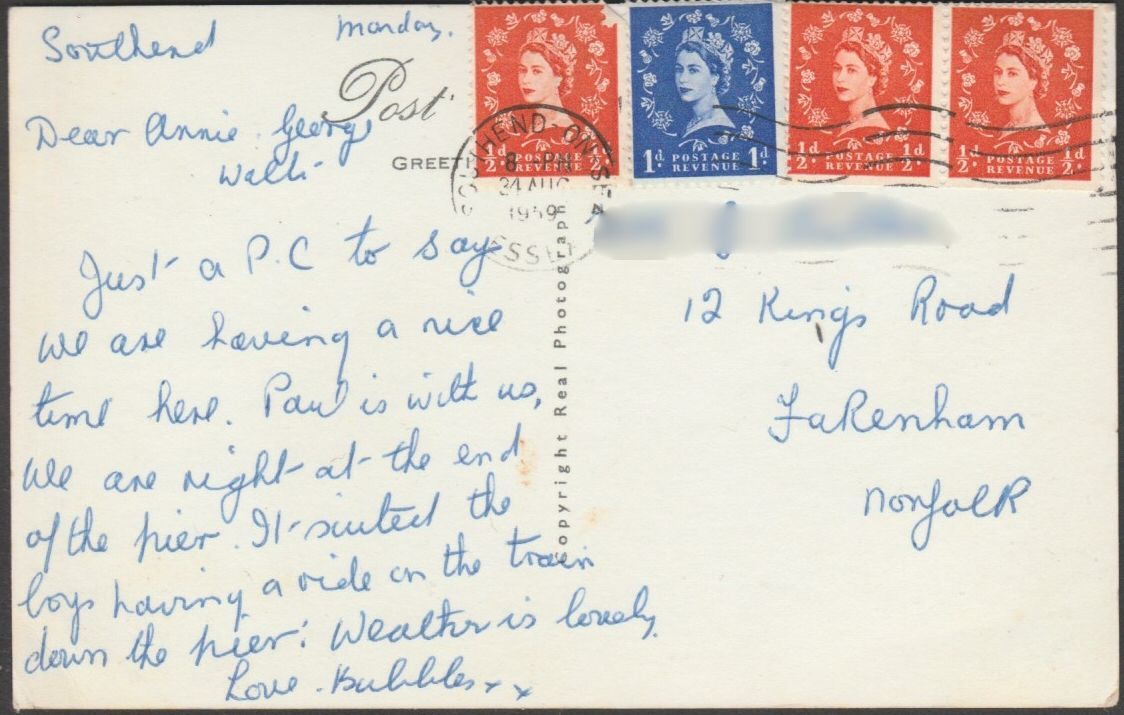 Southend
Monday.
Post
GREETI
Dear Annie. George
Walli
Just a P.C to say
we are having a nice
time here. Paul is with us,
we are right at the end
of the pier. It suited the
boys having a ride on the train
down the pier. Weather is lovely.
Love. Bubbles x x
½d. POSTAGE REVENUE ½d.
1d. POSTAGE REVENUE 1d.
½d. POSTAGE REVENUE ½d.
½d. POSTAGE REVENUE ½d.
SOUTHEND-ON-SEA
8 PM
31 AUG
1959
ESSEX
Copyright Real Photograph
12 Kings Road
Fakenham
Norfolk